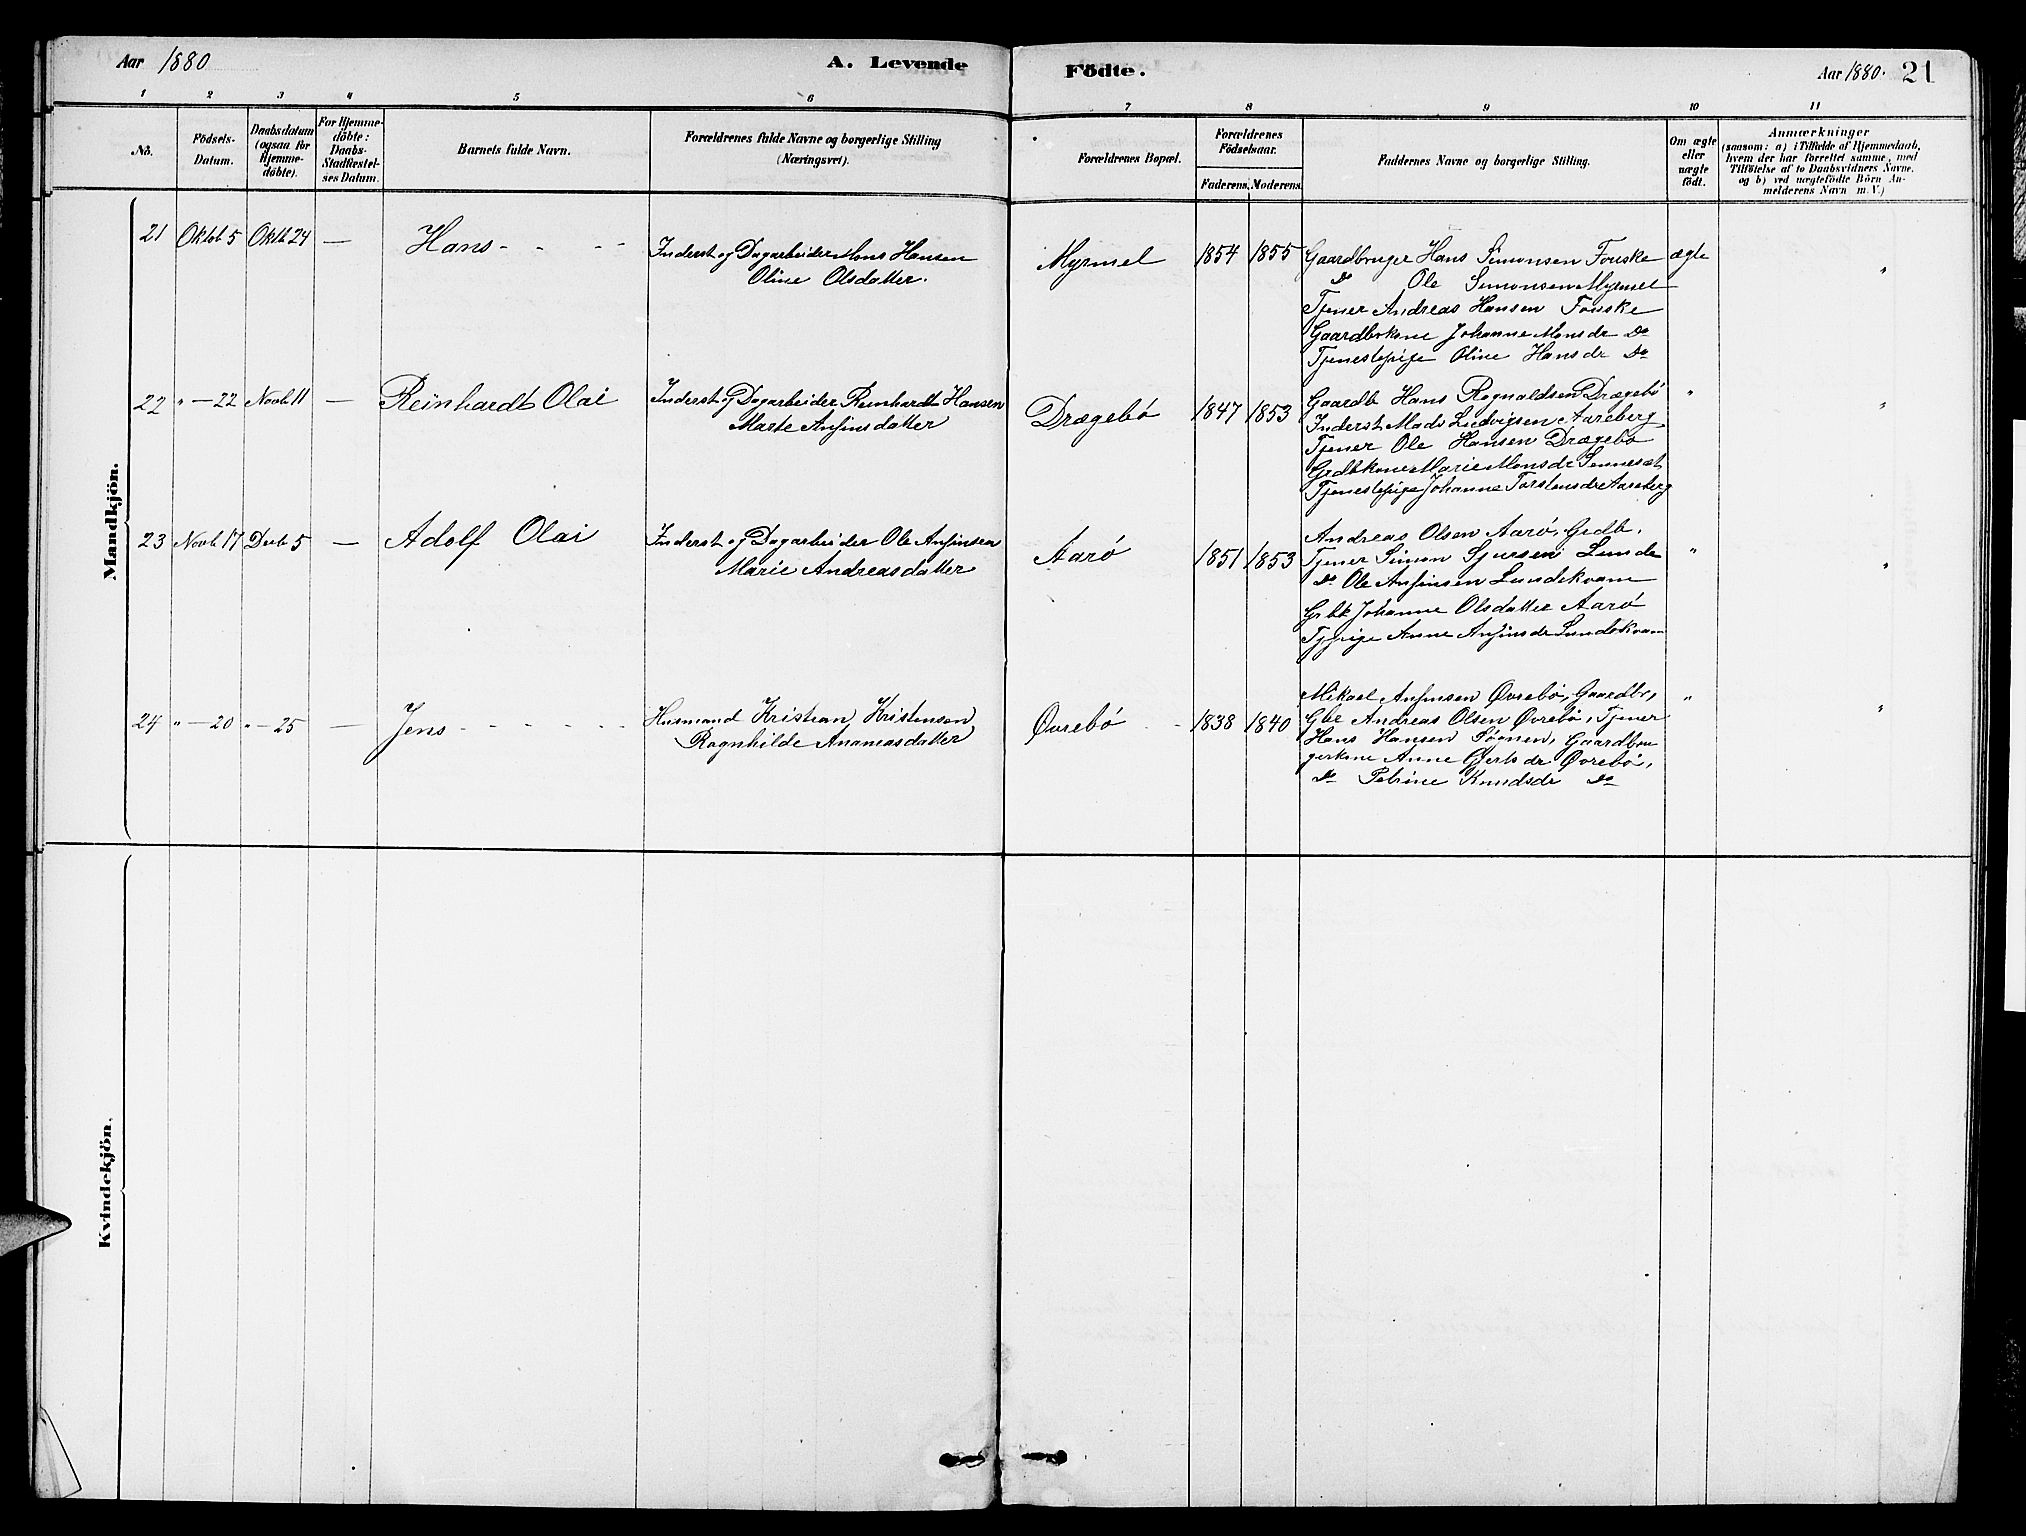 Aar 1880 A. Levende Födte. Aar 1880. 21
1 2 3 4 5 6 7 8 9 10 11
No.
Födsels-
Datum.
Daabsdatum
(ogsaa for
Hjemme-
döbte).
For Hjemme-
döbte:
Daabs-
Stadfæstel-
ses Datum.
Barnets fulde Navn.
Forældrenes fulde Navne og borgerlige Stilling
(Næringsvei).
Forældrenes Bopæl.
Forældrenes
Födselsaar.
Faderens. Moderens.
Faddernes Navne og borgerlige Stilling.
Om ægte
eller
uægte
födt.
Anmærkninger
(saasom: a) i Tilfælde af Hjemmedaab,
hvem der har forrettet samme, med
Tilföielse af to Daabsvidners Navne,
og b) ved uægtefödte Börn An-
melderens Navn m. V.)
Mandkjön.
21 Oktob 5 Oktb 24 — Hans - - - -
Inderst og Dagarbeider Mons Hansen
Oline Olsdatter.
Myrmel 1854 1855
Gaardbruger Hans Simonsen Fouske ægte "
Do Ole Simonsen Myrmel
Tjener Andreas Hansen Fouske
Gaardbrkone Johanne Monsdr Do
Tjenestepige Oline Hansdr Do
22 " — 22 Novb 11 — Reinhardt Olai
Inderst og Dagarbeider Reinhardt Hansen
Marte Anfinsdatter
Drægebø 1847 1853
Gaardb Hans Rognaldsen Drægebø " "
Inderst Mads Ludvigsen Aareberg
Tjener Ole Hansen Drægebø
Grdbkone Marie Monsdr Sennesæt
Tjenestepige Johanne Torstensdr Aareberg
23 Novb 17 Decb 5 — Adolf Olai
Inderst og Dagarbeider Ole Anfinsen
Marie Andreasdatter
Aarø 1851 1853
Andreas Olsen Aarø, Grdb.
Tjener Simon Sjursen Lunde " "
Do Ole Anfinsen Lundekvam
Grbk Johanne Olsdatter Aarø
Tjpige Anne Anfinsdr Lundekvam
24 " — 20 " — 25 — Jens - - - - - -
Husmand Kristian Kristensen
Ragnhilde Ananeasdatter
Øvrebø - - 1838 1840
Mikael Anfinsen Øvrebø, Gaardbr, " "
Gbr Andreas Olsen Øvrebø, Tjener
Hans Hansen Søgnen, Gaardbru
gerkone Anne Gjertsdr Øvrebø,
Do Petrine Knudsdr Do
Kvindekjön.